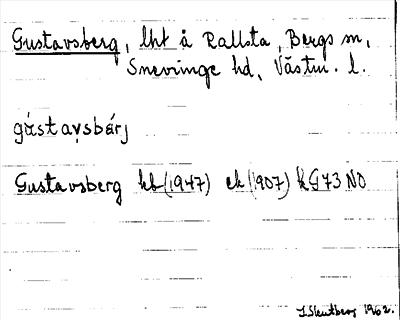 Gustavsberg, lht å Rallsta, Bergs sn,
Snevringe hd, Västm. l.
gústavsbárj
Gustavsberg kb (1947) ek (1907) kG73NO
1962.